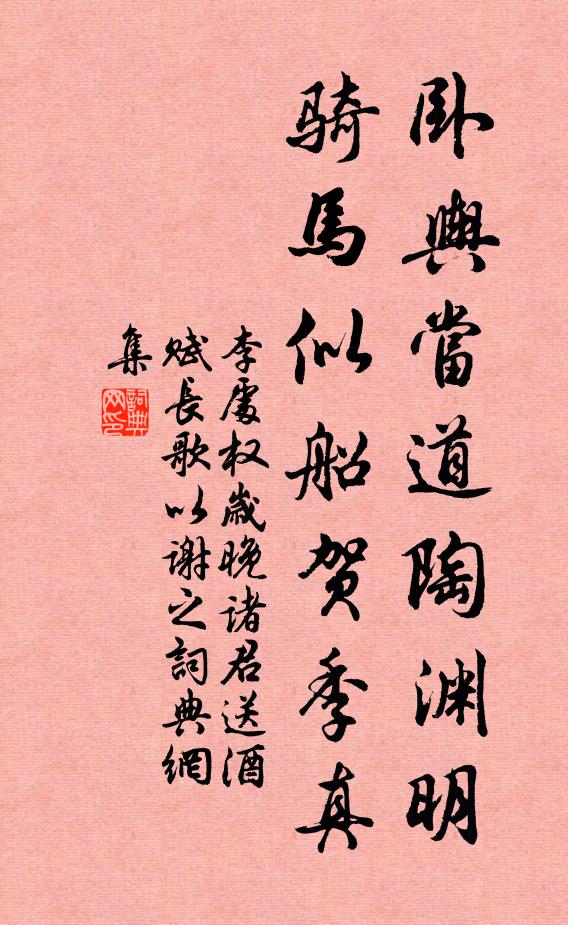 卧輿當道陶渊明
騎馬似船贺季真
李處权歲晚诸君送酒
赋長歌以謝之詞典網
集
詞典
网印